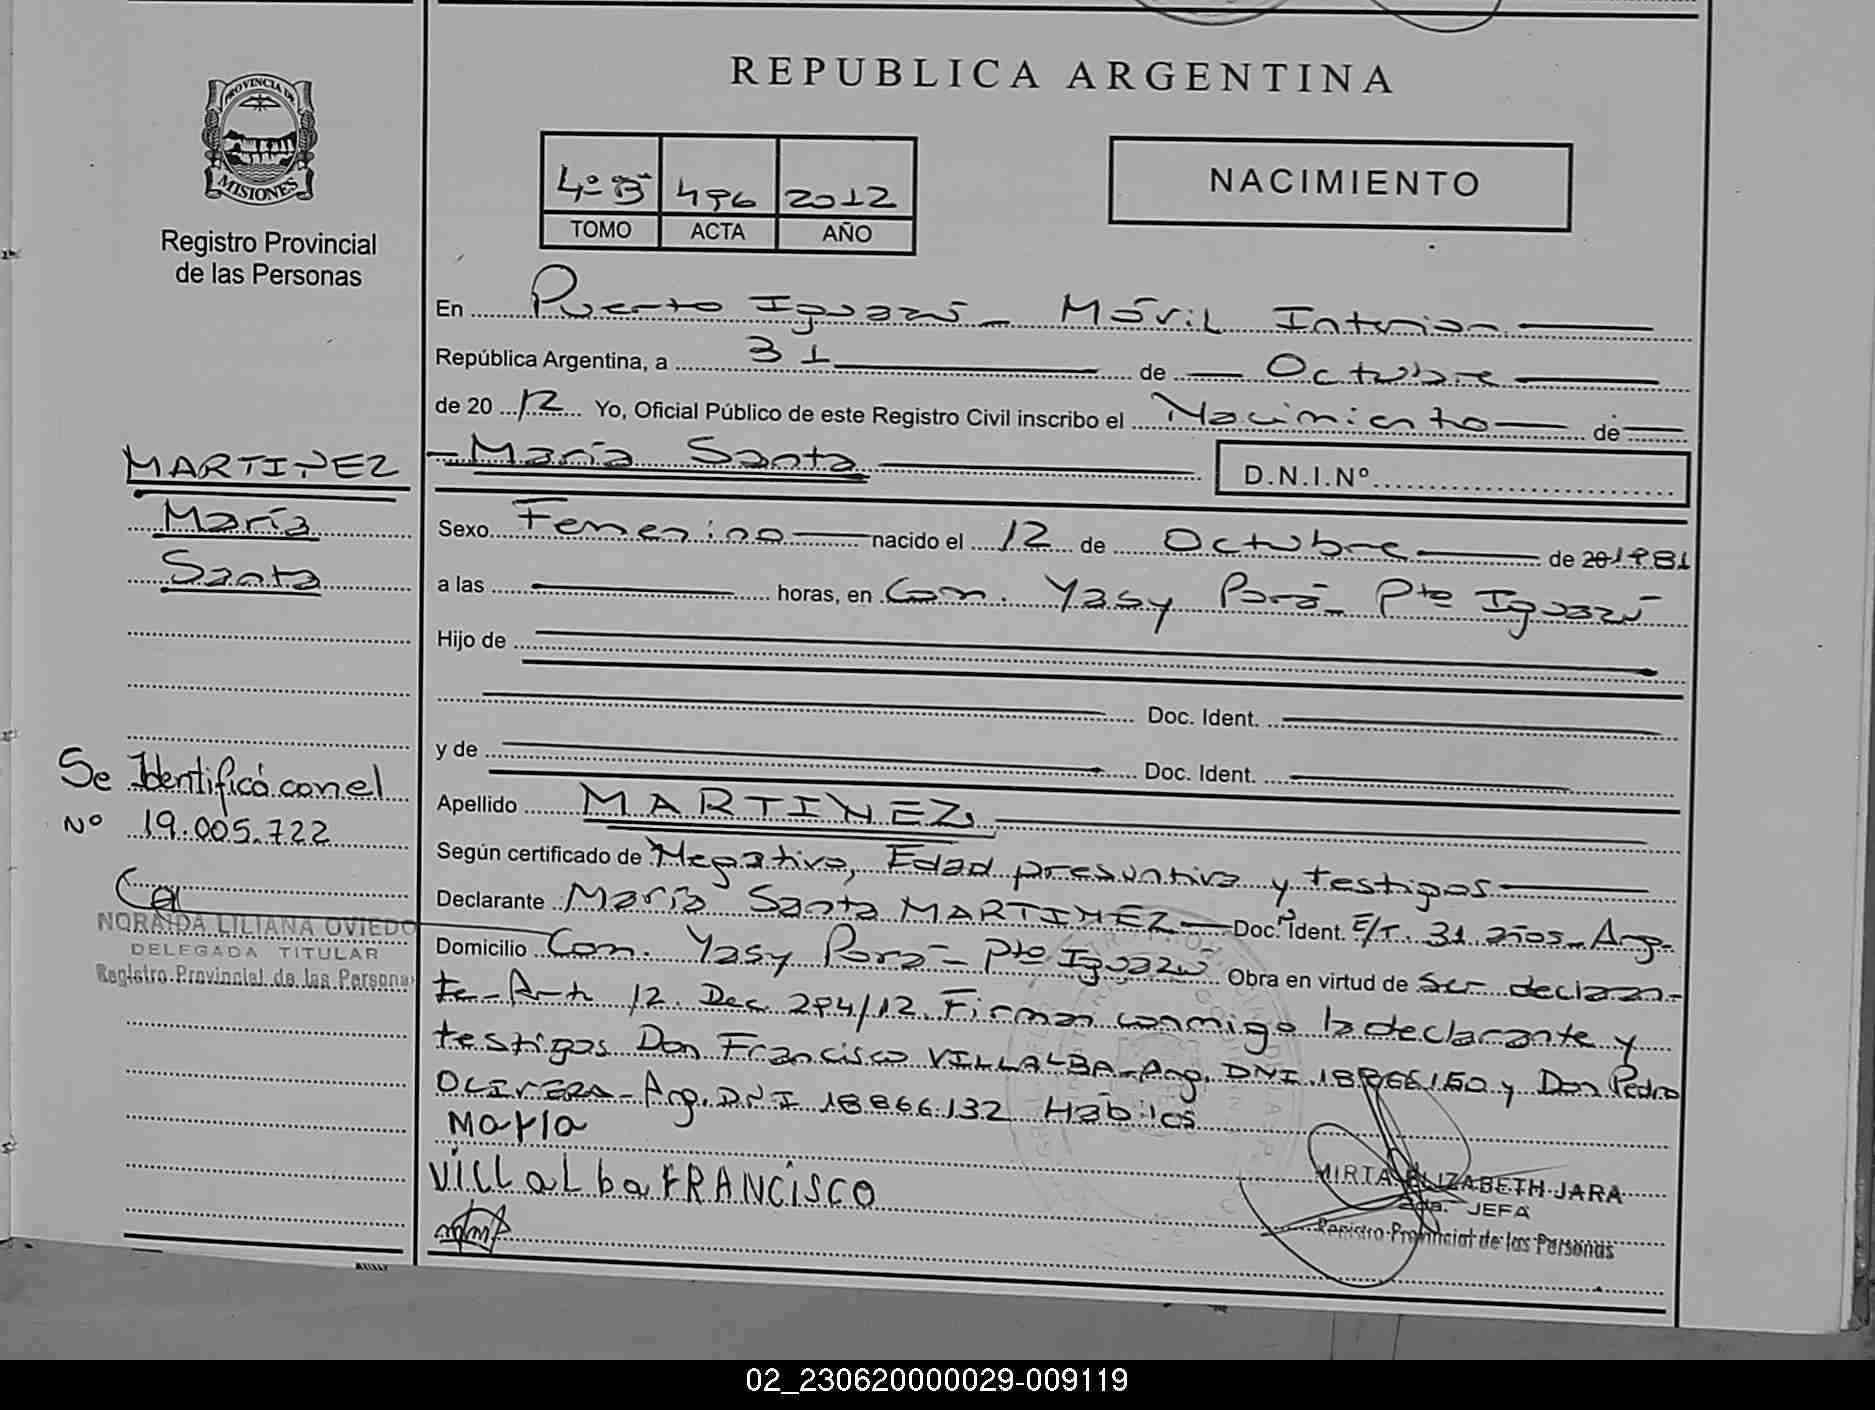 REPUBLICA ARGENTINA
PROVINCIA DE
MISIONES
Registro Provincial
de las Personas
4º B 496 2012
TOMO ACTA AÑO
NACIMIENTO
En Puerto Iguazú - Móvil Interior
República Argentina, a 31 de Octubre
de 20 12 Yo, Oficial Público de este Registro Civil inscribo el Nacimiento de
María Santa D.N.I.Nº
MARTINEZ
María
Santa
Sexo Femenino nacido el 12 de Octubre de 20 1981
a las horas, en Com. Yasy Porá - Pto Iguazú
Hijo de
Doc. Ident.
y de Doc. Ident.
Se Identificó con el
Nº 19.005.722
NORAIDA LILIANA OVIEDO
DELEGADA TITULAR
Registro Provincial de las Personas
Apellido MARTINEZ
Según certificado de Negativo, Edad presuntiva y testigos
Declarante María Santa MARTINEZ Doc. Ident. E/T. 31 años - Arg.
Domicilio Com. Yasy Porá - Pto Iguazú Obra en virtud de Ser declaran-
te - Art 12. Dec. 294/12. Firman conmigo la declarante y
testigos Don Francisco VILLALBA - Arg. DNI. 18866150 y Don Pedro
OLIVERA - Arg. DNI 18.866.132 Hábiles
María
VillalbaFRANCiSCO
MIRTA ELIZABETH JARA
2da. JEFA
Registro Provincial de las Personas
02_230620000029-009119